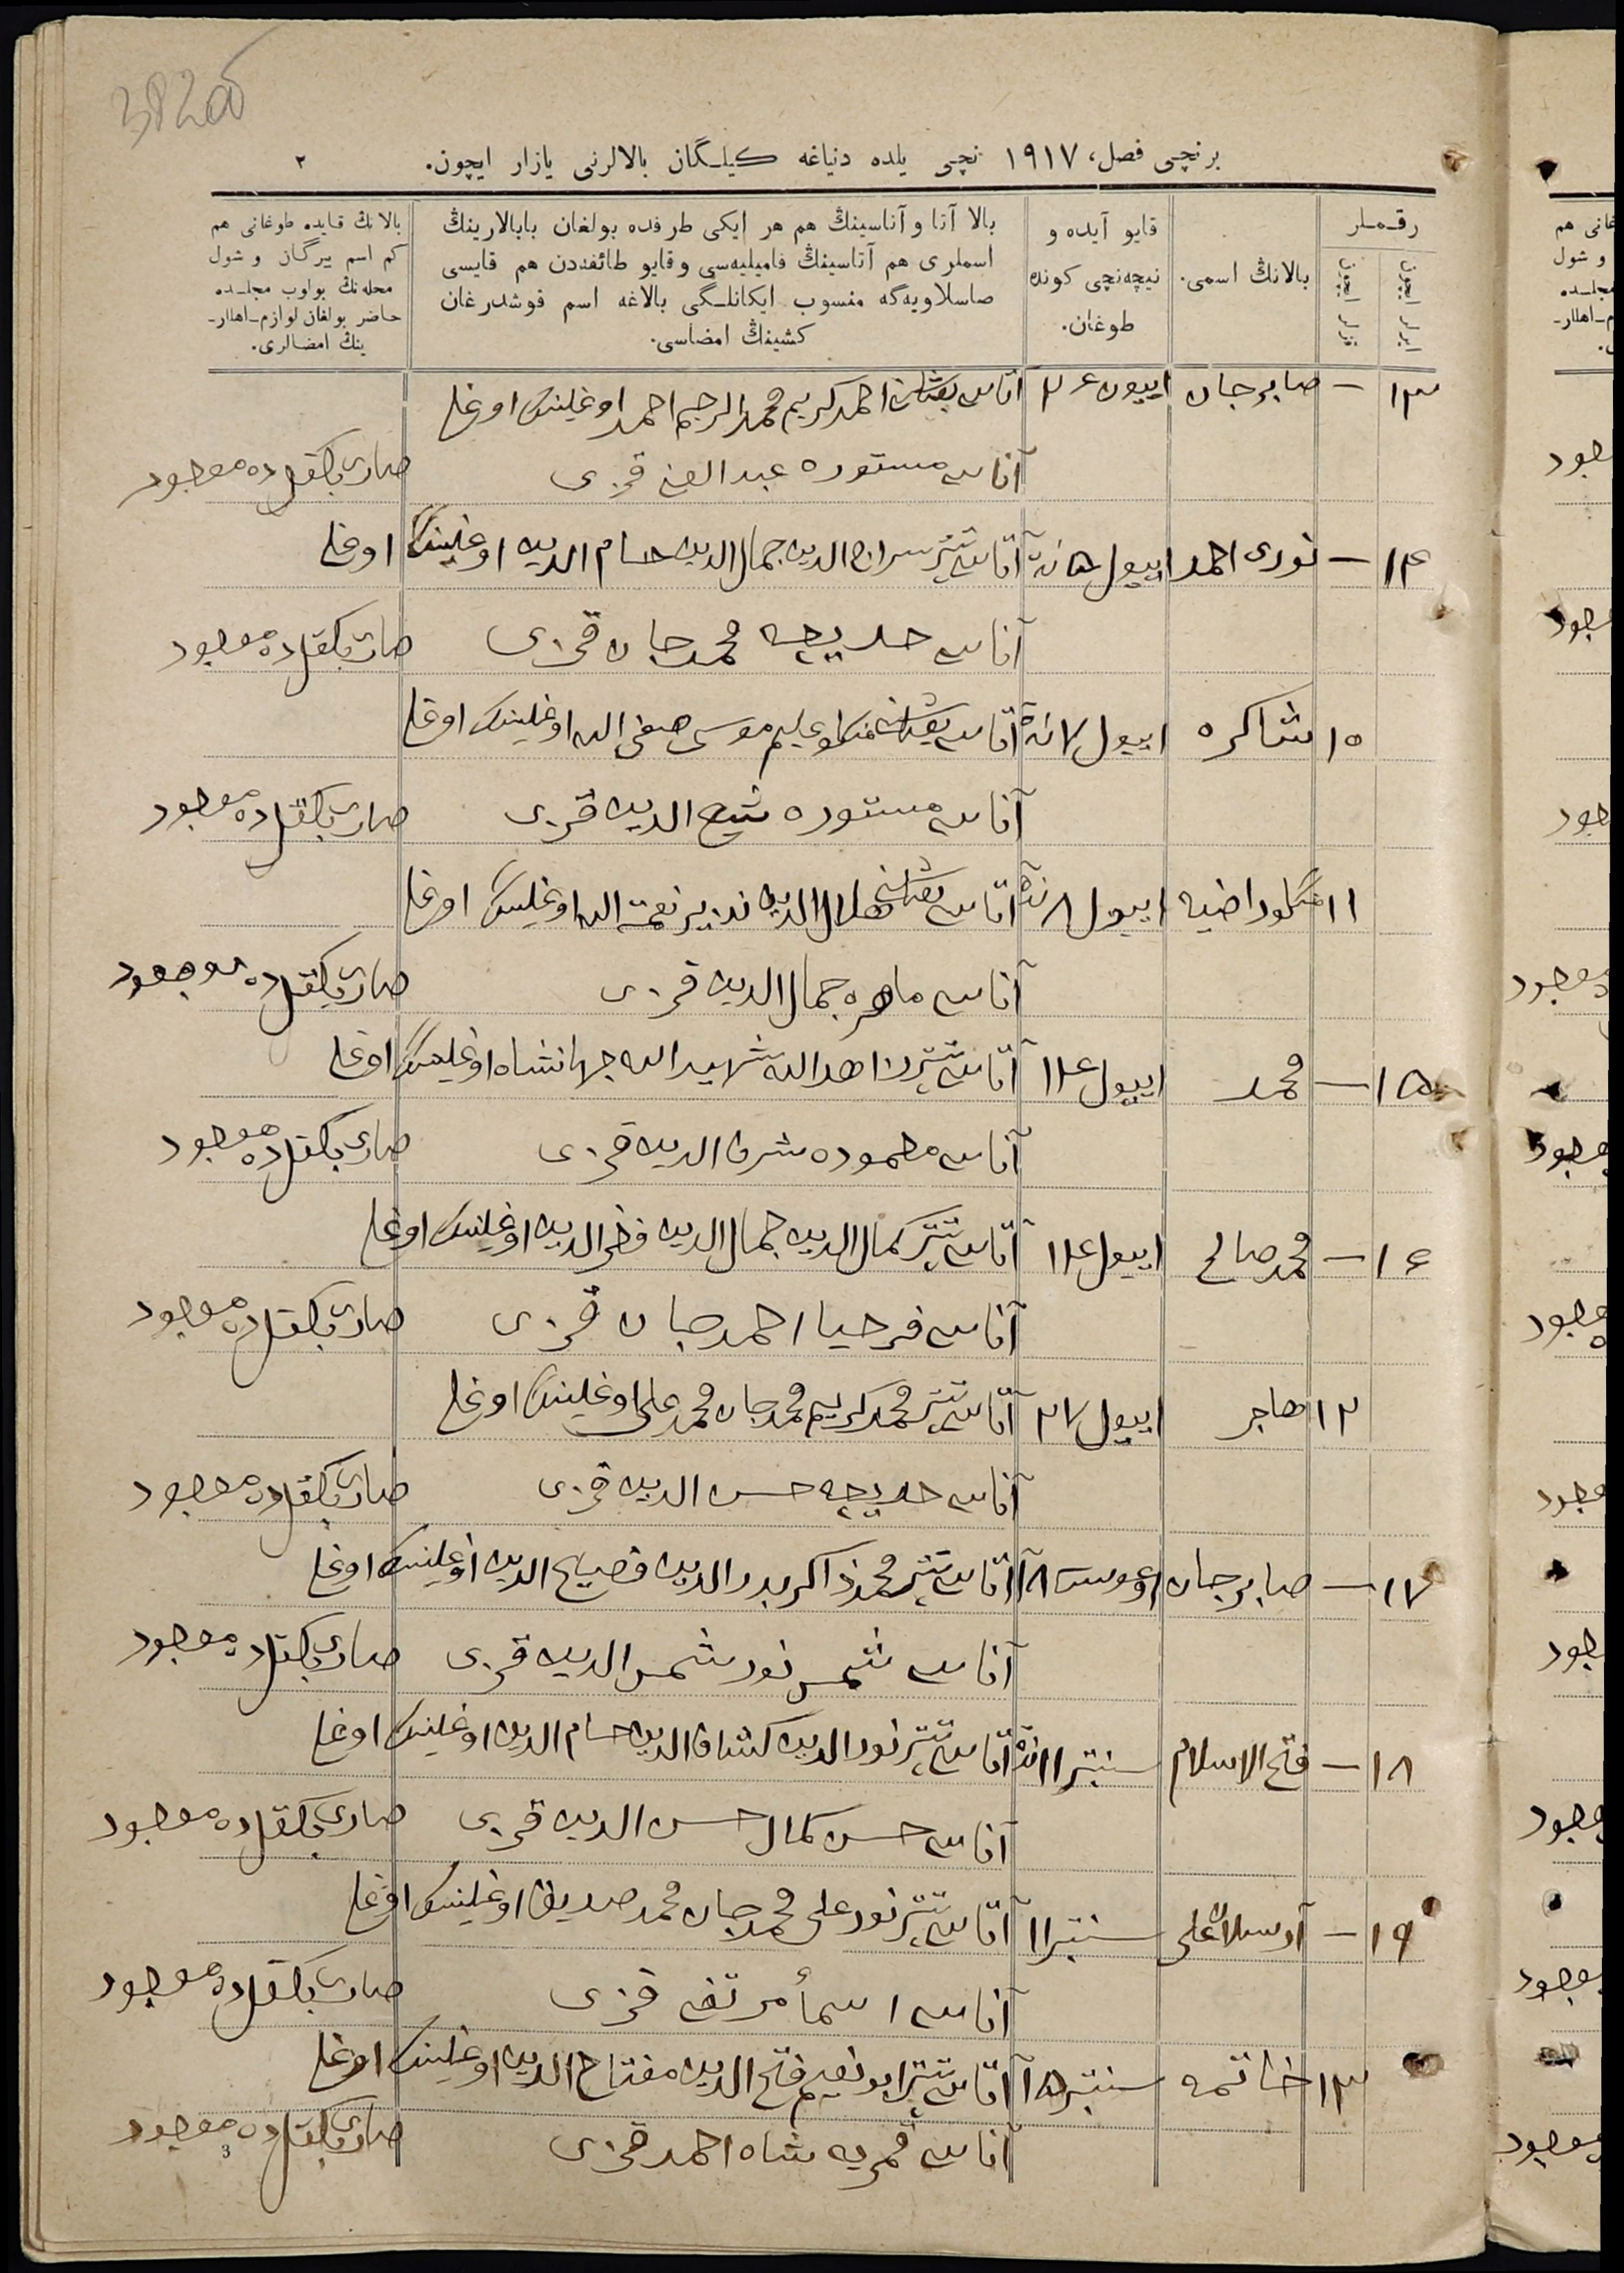 382об
برنچی فصل، ١٩١٧ نچی یلده دنیاغه کیلـگان بالالرنی یازار ایچون.
٢
رقـملر
ایرلر ایچون
قزلر ایچون
بالانڭ اسمی.
قایو آیده و
نیچه‌نچی کونده
طوغان.
بالا آتا و آناسینڭ هم هر ایکی طرفده بولغان بابالارینڭ
اسملری هم آتاسینڭ فامیلیه‌سی و قایو طائفه‌دن هم قایسی
صاسلاویه‌گه منسوب ایکانلـگی بالاغه اسم قوشدرغان
کشینڭ امضاسی.
بالانڭ قـایده طوغانی هم
کم اسم بیرگـان و شول
محله‌نڭ بولوب مجلـده
حاضر بولغان لوازم-اهللر-
ینڭ امضـالری.
١٣ — صابرجان اییون ٢۶ آتاسی احمدکریم محمدالرحیم احمد اوغلینڭ اوغلی
آناسی مستوره عبدالغنی قزی صاری بکقلده موجود
١۴ — نوری احمد اییول ۵نده آتاسی تپتر سراج الدین جمال الدین حسام الدین اوغلینڭ اوغلی
آناسی خدیجه محمدجان قزی صاری بکقلده موجود
١٠ شاکره اییول ٧نده آتاسی منکلوعلیم موسی صفی الله اوغلینڭ اوغلی
آناسی مستوره شیخ الدین قزی صاری بکقلده موجود
١١ منگلوراضیه اییول ٨نده آتاسی هلال الدین نذیر نعمة الله اوغلینڭ اوغلی
آناسی ماهره جمال الدین قزی صاری بکقلده موجود
١۵ — محمد اییول ١۴ آتاسی تپتر زاهدالله شهیدالله جهانشاه اوغلینڭ اوغلی
آناسی محموده شرف الدین قزی صاری بکقلده موجود
١۶ — محمدصالح اییول ١۴ آتاسی تپتر کمال الدین جمال الدین فخرالدین اوغلینڭ اوغلی
آناسی فرحیا احمدجان قزی صاری بکقلده موجود
١٢ هاجر اییول ٢٧ آتاسی تپتر محمدکریم محمدجان محمدعلی اوغلینڭ اوغلی
آناسی خدیجه حسن الدین قزی صاری بکقلده موجود
١٧ — صابرجان اوغوست ٨ آتاسی تپتر محمدذاکر بدرالدین فصیح الدین اوغلینڭ اوغلی
آناسی شمس نور شمس الدین قزی صاری بکقلده موجود
١٨ — فتح الاسلام سنتبر ١١نده آتاسی تپتر نورالدین کشاف الدین حسام الدین اوغلینڭ اوغلی
آناسی حسن کمال حسن الدین قزی صاری بکقلده موجود
١٩ — آرسلان علی سنتبر ١١ آتاسی تپتر نورعلی محمدجان محمدصدیق اوغلینڭ اوغلی
آناسی اسمأ مرتضی قزی صاری بکقلده موجود
١٣ خاتمه سنتبر ١۵ آتاسی تپتر ابونعیم فتح الدین مفتاح الدین اوغلینڭ اوغلی
آناسی قمریه شاه احمد قزی صاری بکقلده موجود
3